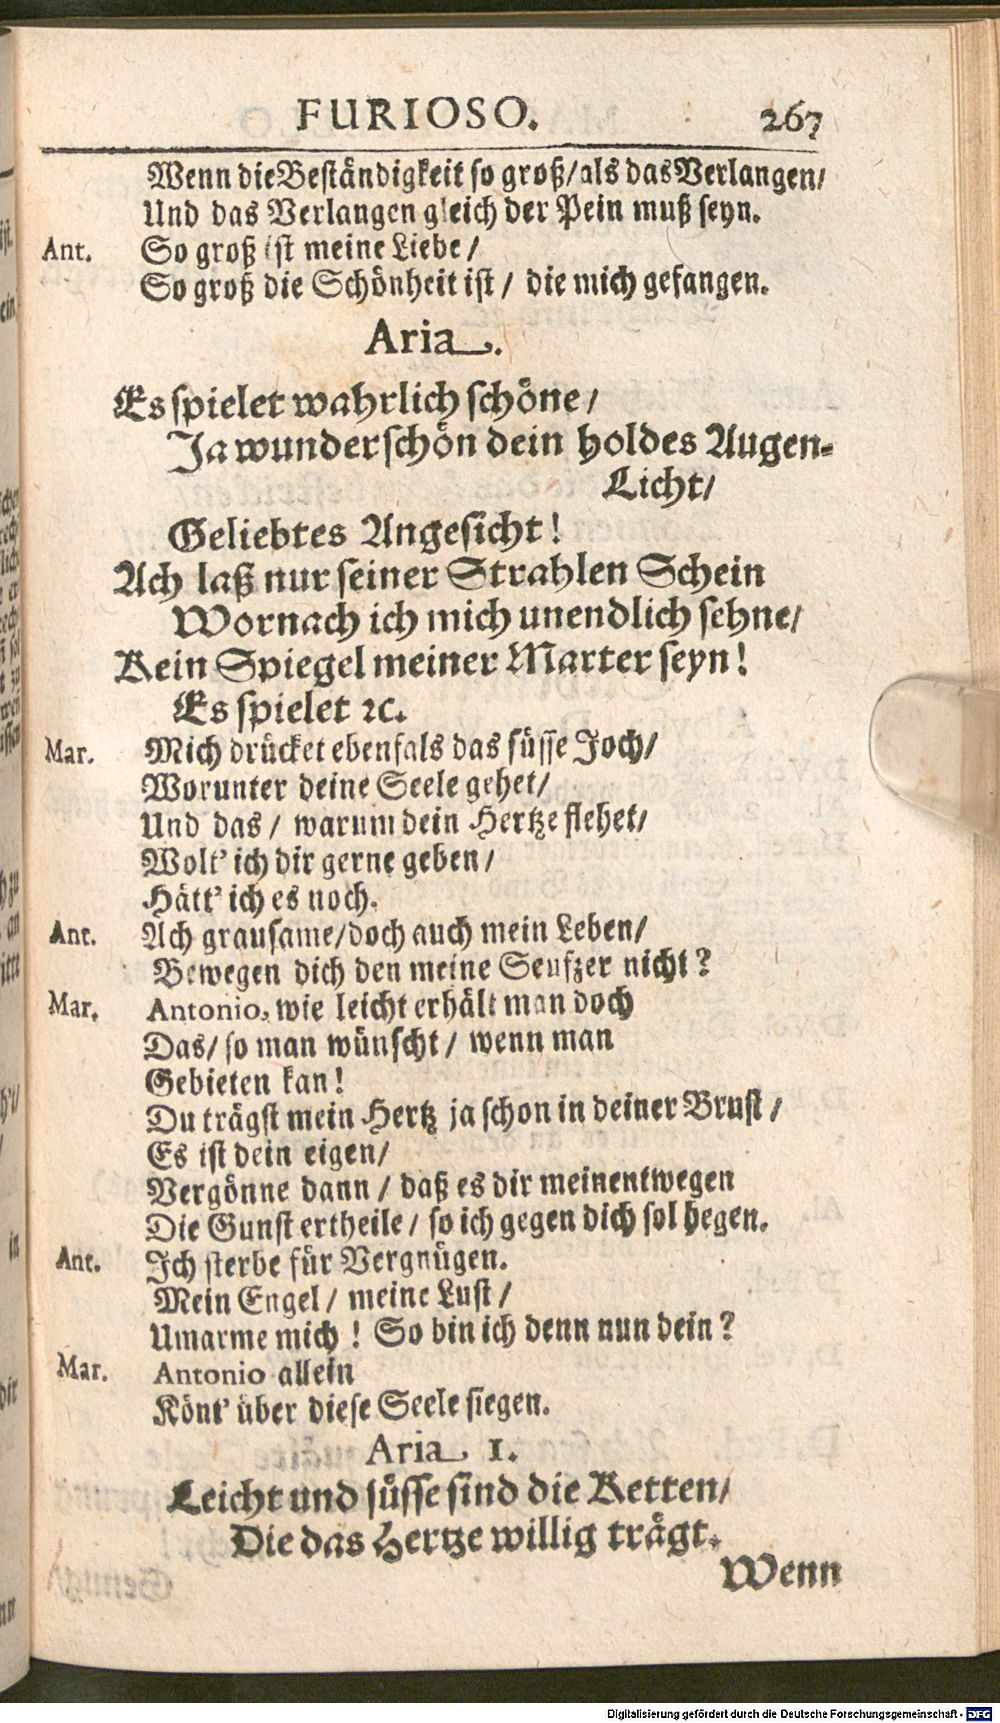 FURIOSO. 267
Wenn die Beständigkeit so groß/als das Verlangen/
Und das Verlangen gleich der Pein muß seyn.
Ant. So groß ist meine Liebe/
So groß die Schönheit ist/ die mich gefangen.
Aria.
Es spielet wahrlich schöne/
Ja wunderschön dein holdes Augen-
Licht/
Geliebtes Angesicht!
Ach laß nur seiner Strahlen Schein
Wornach ich mich unendlich sehne/
Kein Spiegel meiner Marter seyn!
Es spielet ꝛc.
Mar. Mich drücket ebenfals das süsse Joch/
Worunter deine Seele gehet/
Und das/ warum dein Hertze flehet/
Wolt' ich dir gerne geben/
Hätt' ich es noch.
Ant. Ach grausame/doch auch mein Leben/
Bewegen dich den meine Seufzer nicht?
Mar. Antonio, wie leicht erhält man doch
Das/ so man wünscht/ wenn man
Gebieten kan!
Du trägst mein Hertz ja schon in deiner Brust/
Es ist dein eigen/
Vergönne dann/ daß es dir meinentwegen
Die Gunst ertheile/ so ich gegen dich sol hegen.
Ant. Ich sterbe für Vergnügen.
Mein Engel/ meine Lust/
Umarme mich! So bin ich denn nun dein?
Mar. Antonio allein
Könt' über diese Seele siegen.
Aria 1.
Leicht und süsse sind die Ketten/
Die das Hertze willig trägt.
Wenn
Digitalisierung gefördert durch die Deutsche Forschungsgemeinschaft - DFG